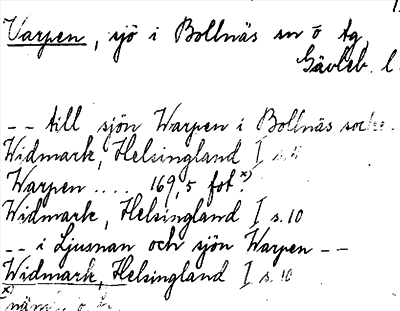 Varpen, sjö i Bollnäs sn o tg
Gävleb. l
-- till sjön Warpen i Bollnäs socke.
Widmark, Helsingland I s.
Warpen .... 169,5 fot x)
Widmark, Helsingland I s. 10
-- i Ljusnan och sjön Warpen --
Widmark, Helsingland I s. 10
x)